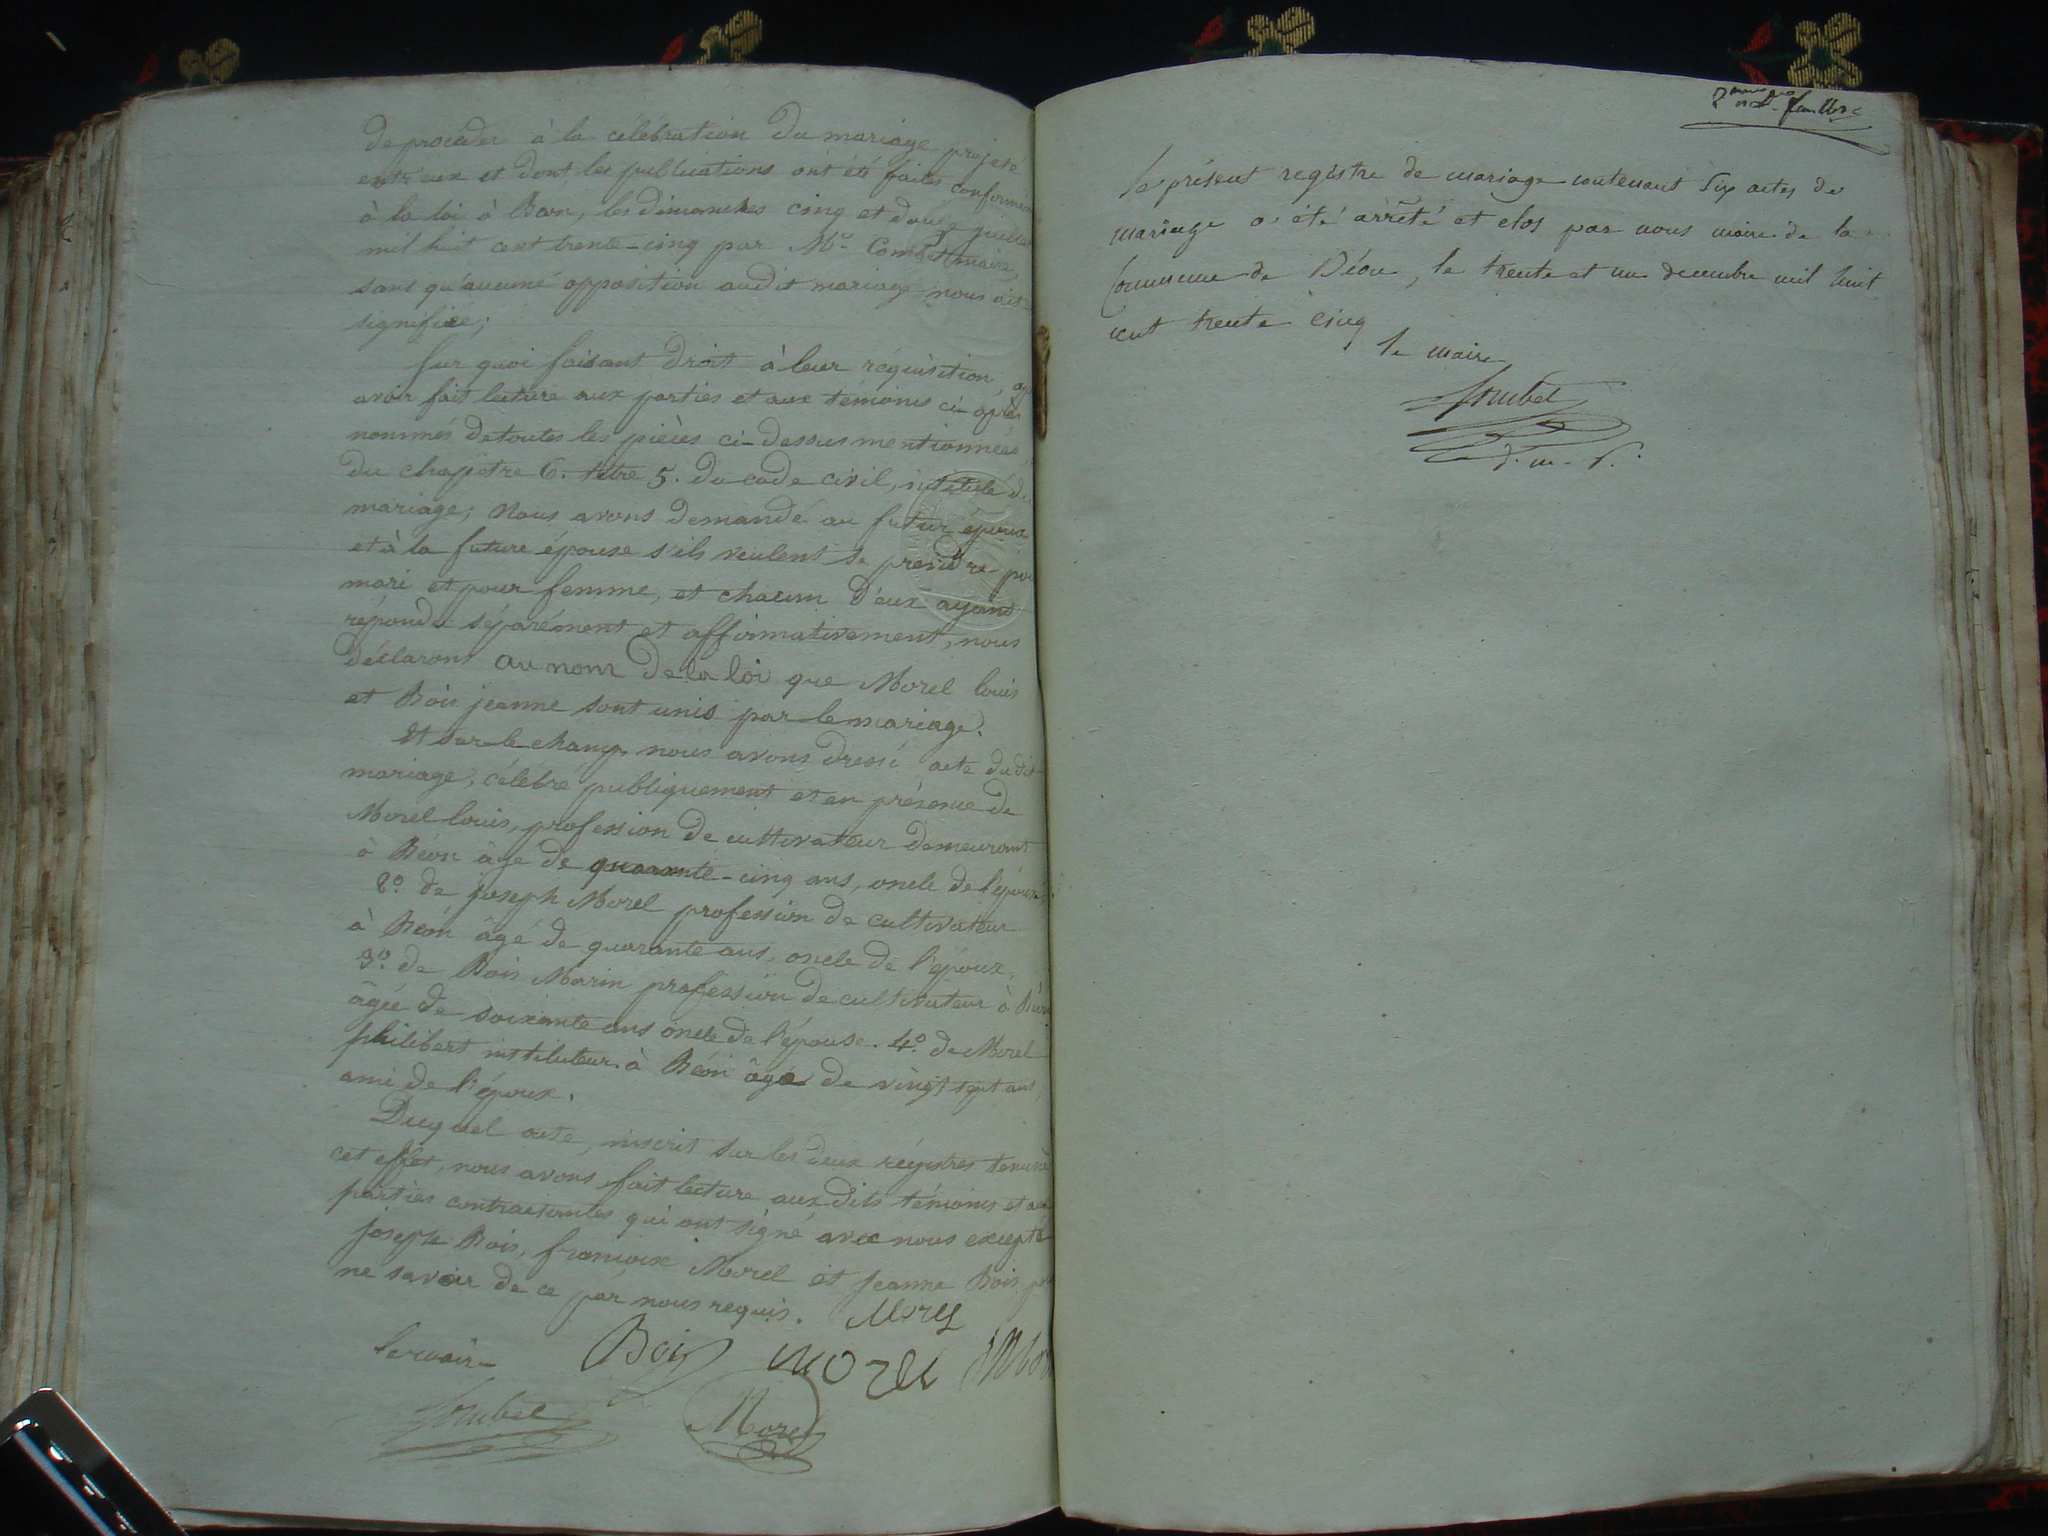 de procéder à la célébration du mariage projeté
entr'eux et dont les publications ont été faites conformém
à la loi à Béon, les dimanches cinq et douze juillet
mil huit cent trente-cinq par Mr. Combet maire,
sans qu'aucune opposition audit mariage nous ait
signifiée;
Sur quoi faisant droit à leur réquisition,
avoir fait lecture aux parties et aux témoins ci-après
nommés de toutes les pièces ci-dessus mentionnées
du chapitre 6. titre 5. du code civil, intitulé du
mariage; nous avons demandé au futur époux
et à la future épouse s'ils veulent se prendre pou
mari et pour femme, et chacun d'eux ayant
répondu séparément et affirmativement, nous
déclarons au nom de la loi que Morel louis
et Bois jeanne sont unis par le mariage.
Et sur-le-champ nous avons dressé acte dudit
mariage, célébré publiquement et en présence de
Morel louis, profession de cultivateur demeurant
à Béon âge de quarante-cinq ans, oncle de l'époux
2o. de joseph Morel profession de cultivateur
à Béon âgé de quarante ans, oncle de l'époux,
3o. de Bois Marin profession de cultivateur à Béon
âgée de soixante ans oncle de l'épouse. 4o. de Morel
philibert instituteur à Béon âgé de vingt sept ans,
ami de l'époux.
Duquel acte, inscrit sur les deux régistres tenus à
cet effet, nous avons fait lecture aux dits témoins et aux
parties contractantes qui ont signé avec nous excepté
joseph Bois, francoise Morel et jeanne Bois pr
ne savoir de ce par nous requis. Morel
le maire Bois morel
Combet Morel
2me feuillet
le présent registre de mariage contenant Six actes de
mariage a été arrêté et clos par nous maire de la
Commune de Béon, le trente et un decembre mil huit
cent trente cinq
le maire
Combet